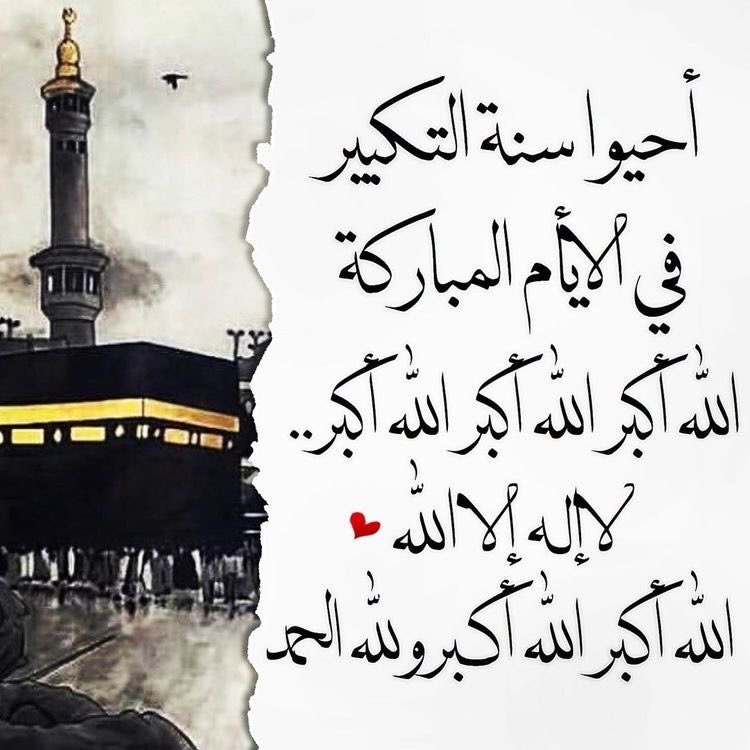 أحيوا سنة التكبير
في الأيام المباركة
الله أكبر الله أكبر الله أكبر..
لا إله إلا الله
الله أكبر الله أكبر ولله الحمد